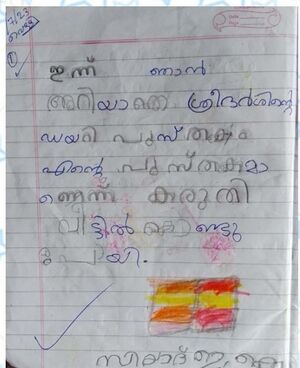 7/23
വെള്ളി
①
ഇന്ന് ഞാൻ
അറിയാതെ ശ്രീദർശിന്റെ
ഡയറി പുസ്തകം
എന്റെ പുസ്തകമാ
ണെന്ന് കരുതി
വീട്ടിൽ കൊണ്ടു
പോയി.